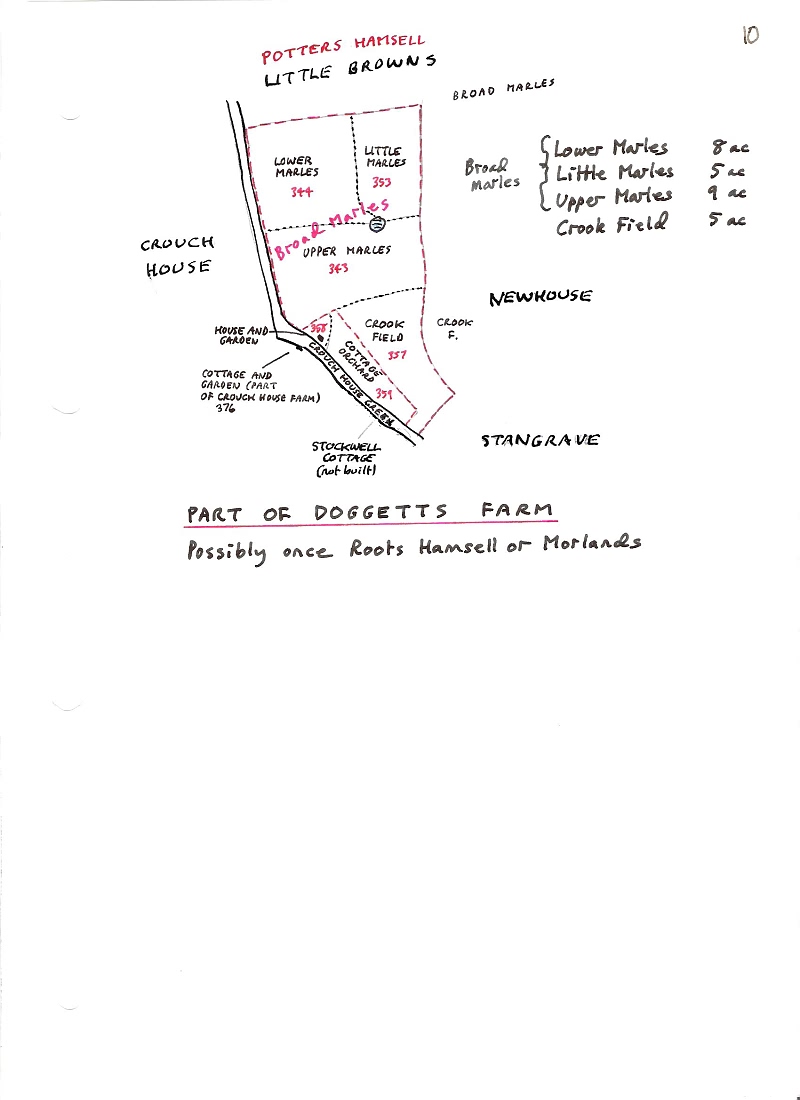 10
POTTERS HAMSELL
LITTLE BROWNS
BROAD MARLES
LOWER
MARLES
344
LITTLE
MARLES
353
Broad
Marles
Lower Marles 8 ac
Little Marles 5 ac
Upper Marles 9 ac
Crook Field 5 ac
Broad Marles
UPPER MARLES
343
CROUCH
HOUSE
NEWHOUSE
HOUSE AND
GARDEN
358
CROOK
FIELD
357
CROOK
F.
COTTAGE
ORCHARD
359
CROUCH HOUSE GREEN
COTTAGE AND
GARDEN (PART
OF CROUCH HOUSE FARM)
376
STOCKWELL
COTTAGE
(not built)
STANGRAVE
PART OF DOGGETTS FARM
Possibly once Roots Hamsell or Morlands